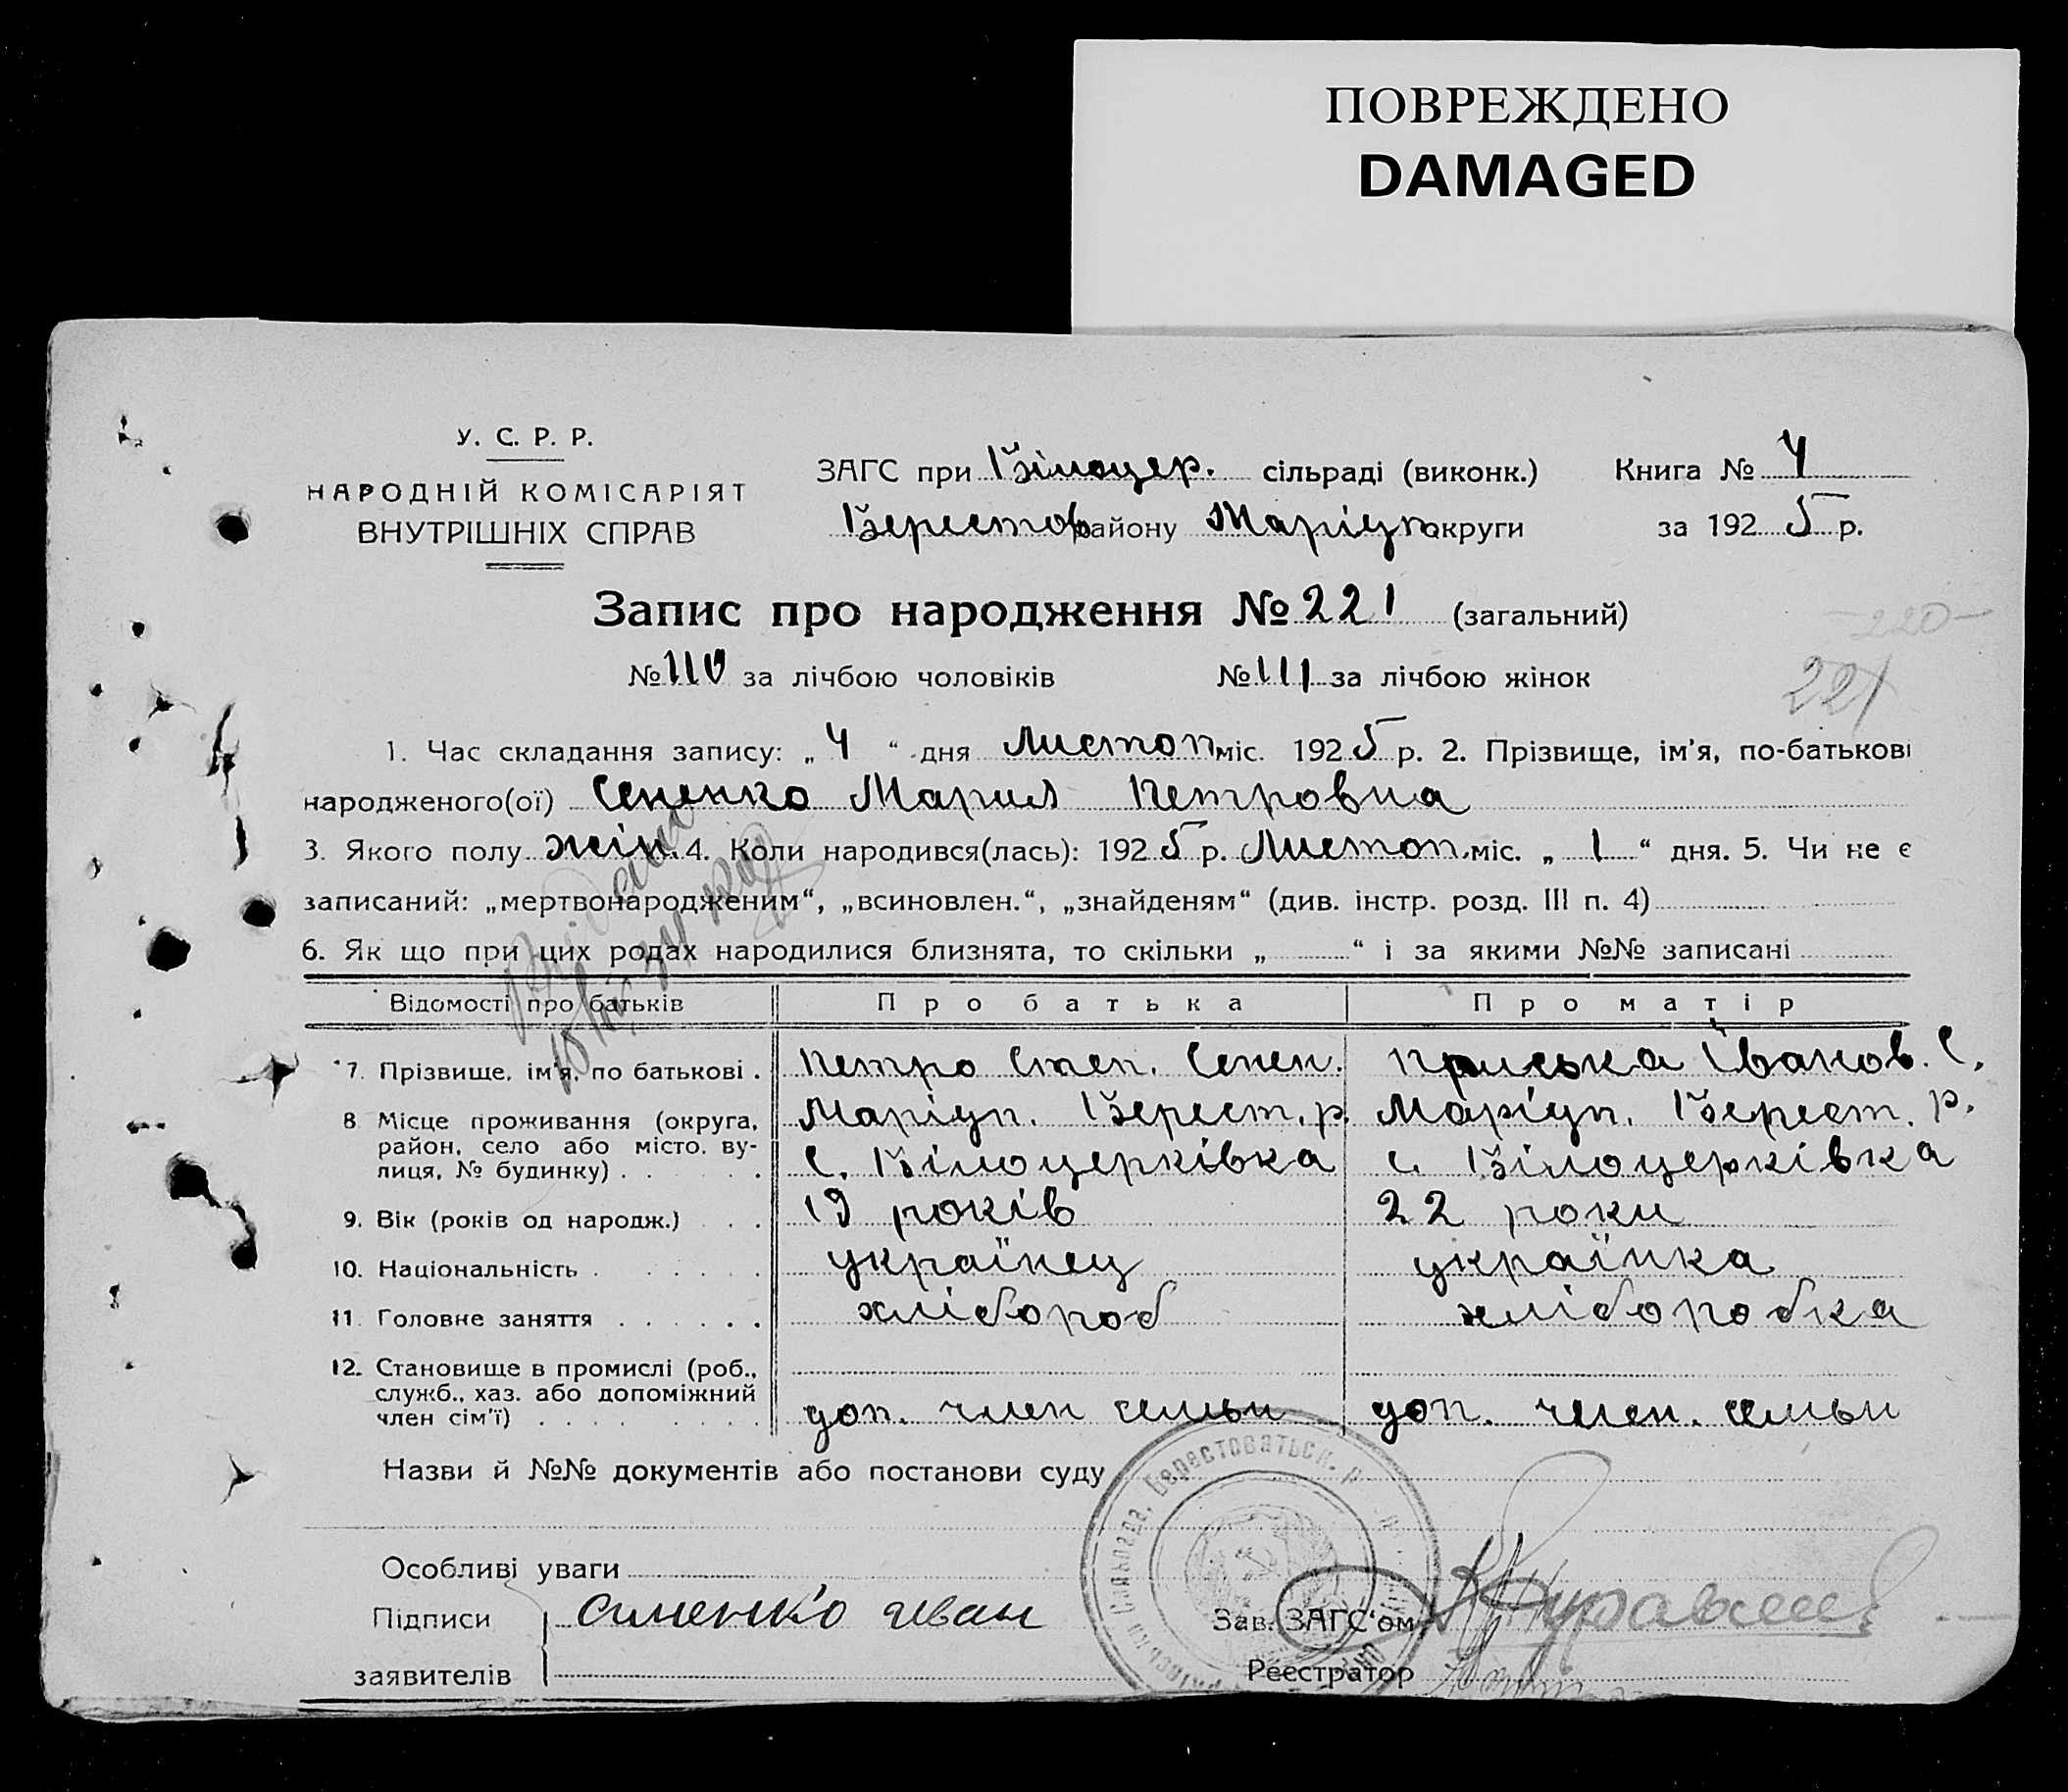 ПОВРЕЖДЕНО
DAMAGED
У. С. Р. Р.
НАРОДНІЙ КОМІСАРІЯТ
ВНУТРІШНІХ СПРАВ
ЗАГС при Білоцер. сільраді (виконк.) Книга № 4
Берестов району Маріуп. округи за 1925 р.
Запис про народження № 221 (загальний)
220
№ 110 за лічбою чоловіків № 111 за лічбою жінок
221
1. Час складання запису: „ 4 “ дня Листоп міс. 1925 р. 2. Прізвище, ім'я, по-батькові
народженого(ої) Сененко Мария Петровна
3. Якого полу жін. 4. Коли народився(лась): 1925 р. Листоп. міс. „ 1 “ дня. 5. Чи не є
записаний: „мертвонародженим“, „всиновлен.“, „знайденям“ (див. інстр. розд. III п. 4)
6. Як що при цих родах народилися близнята, то скільки „ “ і за якими №№ записані
Відомості про батьків Про батька Про матір
7. Прізвище, ім'я, по батькові . Петро Степ. Сенен. Приська Іванов. С.
8 Місце проживання (округа, Маріуп. Берест. р. Маріуп. Берест. р.
район, село або місто, ву-
лиця, № будинку) . . . с. Білоцерківка с. Білоцерківка
9. Вік (років од народж.) . . . 19 років 22 роки
10. Національність . . . . . українец українка
11. Головне заняття . . . . . . хлібороб хліборобка
12. Становище в промислі (роб.,
служб., хаз. або допоміжний
член сім'ї) . . . . . . . . доп. член семьи доп. член. семьи
Назви й №№ документів або постанови суду
Берестоватьск. р
Особливі уваги
Підписи Сененко Иван Зав. ЗАГС'ом
заявителів Реєстратор